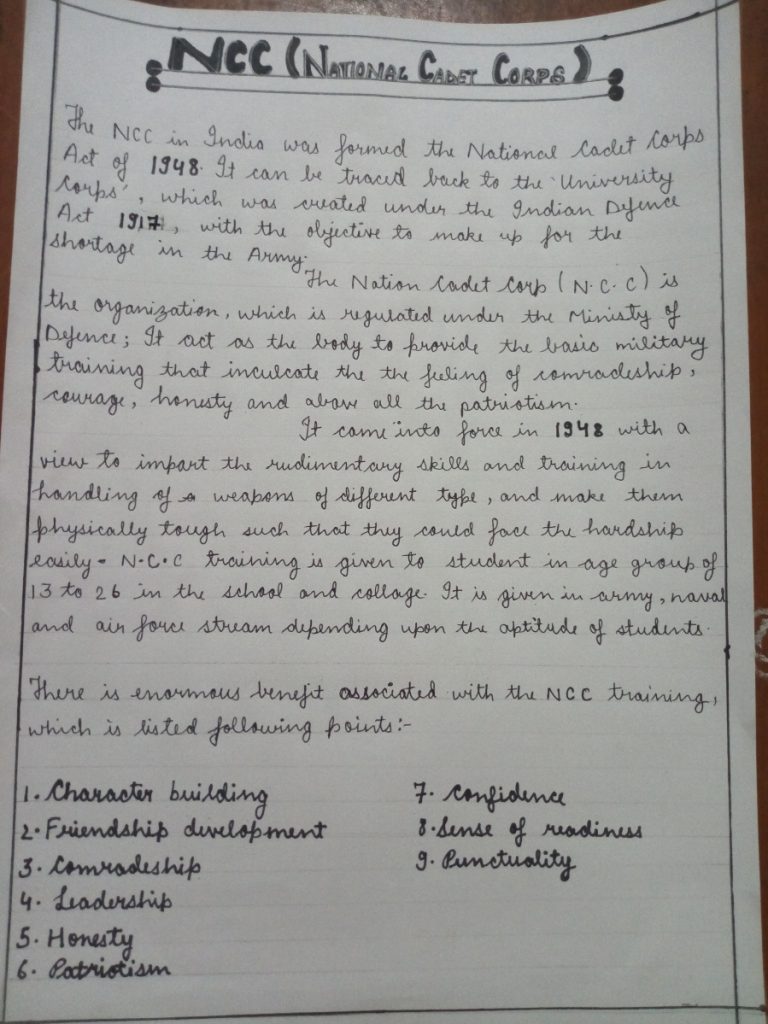 NCC (NATIONAL CADET CORPS)
The NCC in India was formed the National Cadet Corps
Act of 1948. It can be traced back to the 'University
Corps', which was created under the Indian Defence
Act 1917, with the objective to make up for the
shortage in the Army.
The Nation Cadet Corp (N.C.C) is
the organization, which is regulated under the Ministy of
Defence; It act as the body to provide the basic military
training that inculcate the the feeling of comradeship,
courage, honesty and above all the patriotism.
It came into force in 1948 with a
view to impart the rudimentary skills and training in
handling of weapons of different type, and make them
physically tough such that they could face the hardship
easily. N.C.C training is given to student in age group of
13 to 26 in the school and collage. It is given in army, naval
and air force stream depending upon the aptitude of students.
There is enormous benefit associated with the NCC training,
which is listed following points:-
1. Character building
2. Friendship development
3. Comradeship
4. Leadership
5. Honesty
6. Patriotism
7. Confidence
8. Sense of readiness
9. Punctuality